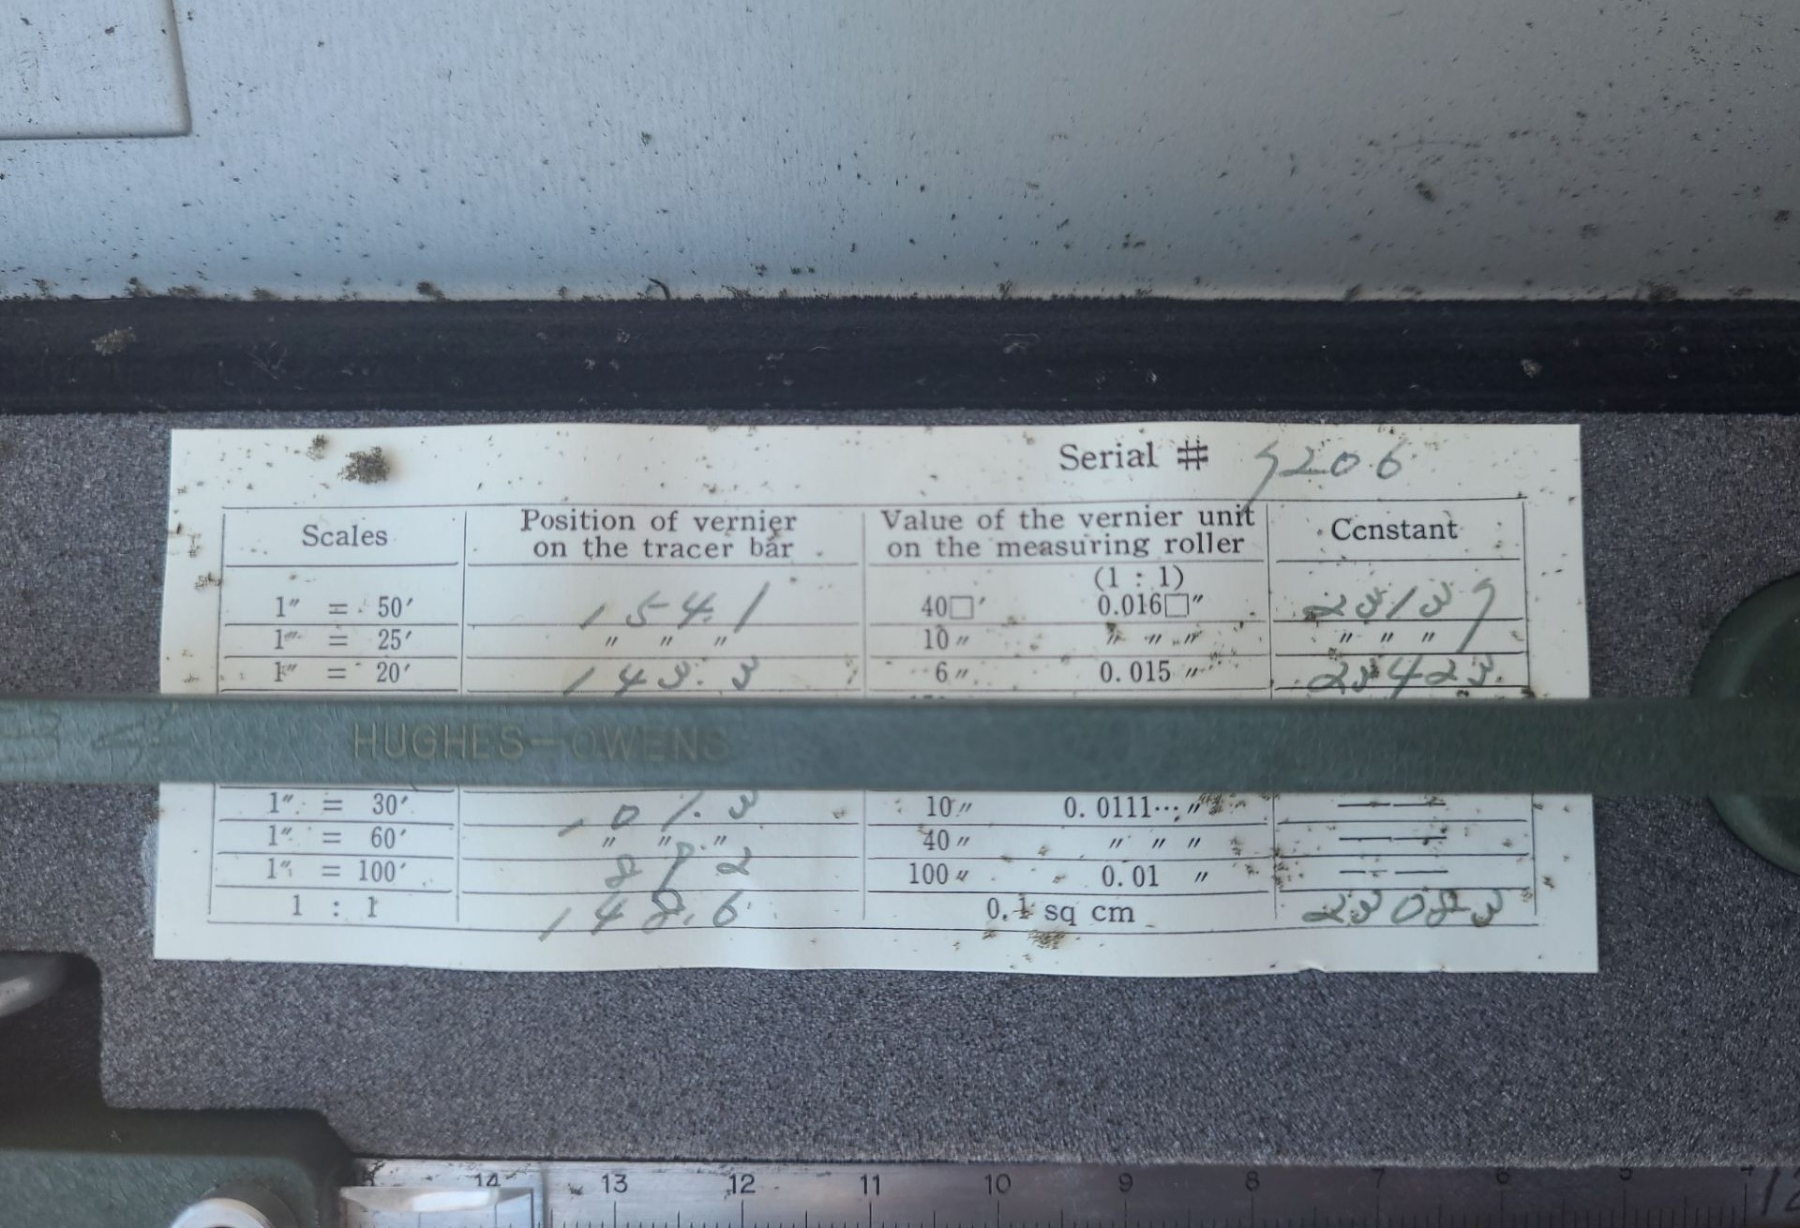 Serial # 9206
Scales Position of vernier on the tracer bar Value of the vernier unit on the measuring roller Ccnstant
(1 : 1)
1″ = 50′ 154.1 40□′ 0.016□″ 23139
1″ = 25′ ″ ″ ″ 10 ″ ″ ″ ″ ″ ″ ″
1″ = 20′ 143.3 6 ″ 0.015 ″ 23423
HUGHES-OWENS
1″ = 30′ 101.3 10 ″ 0.0111… ″ — —
1″ = 60′ ″ ″ ″ 40 ″ ″ ″ ″ — —
1″ = 100′ 100 ″ 0.01 ″ — —
1 : 1 148.6 0.1 sq cm 23083
14 13 12 11 10 9 8 7 6 5 4